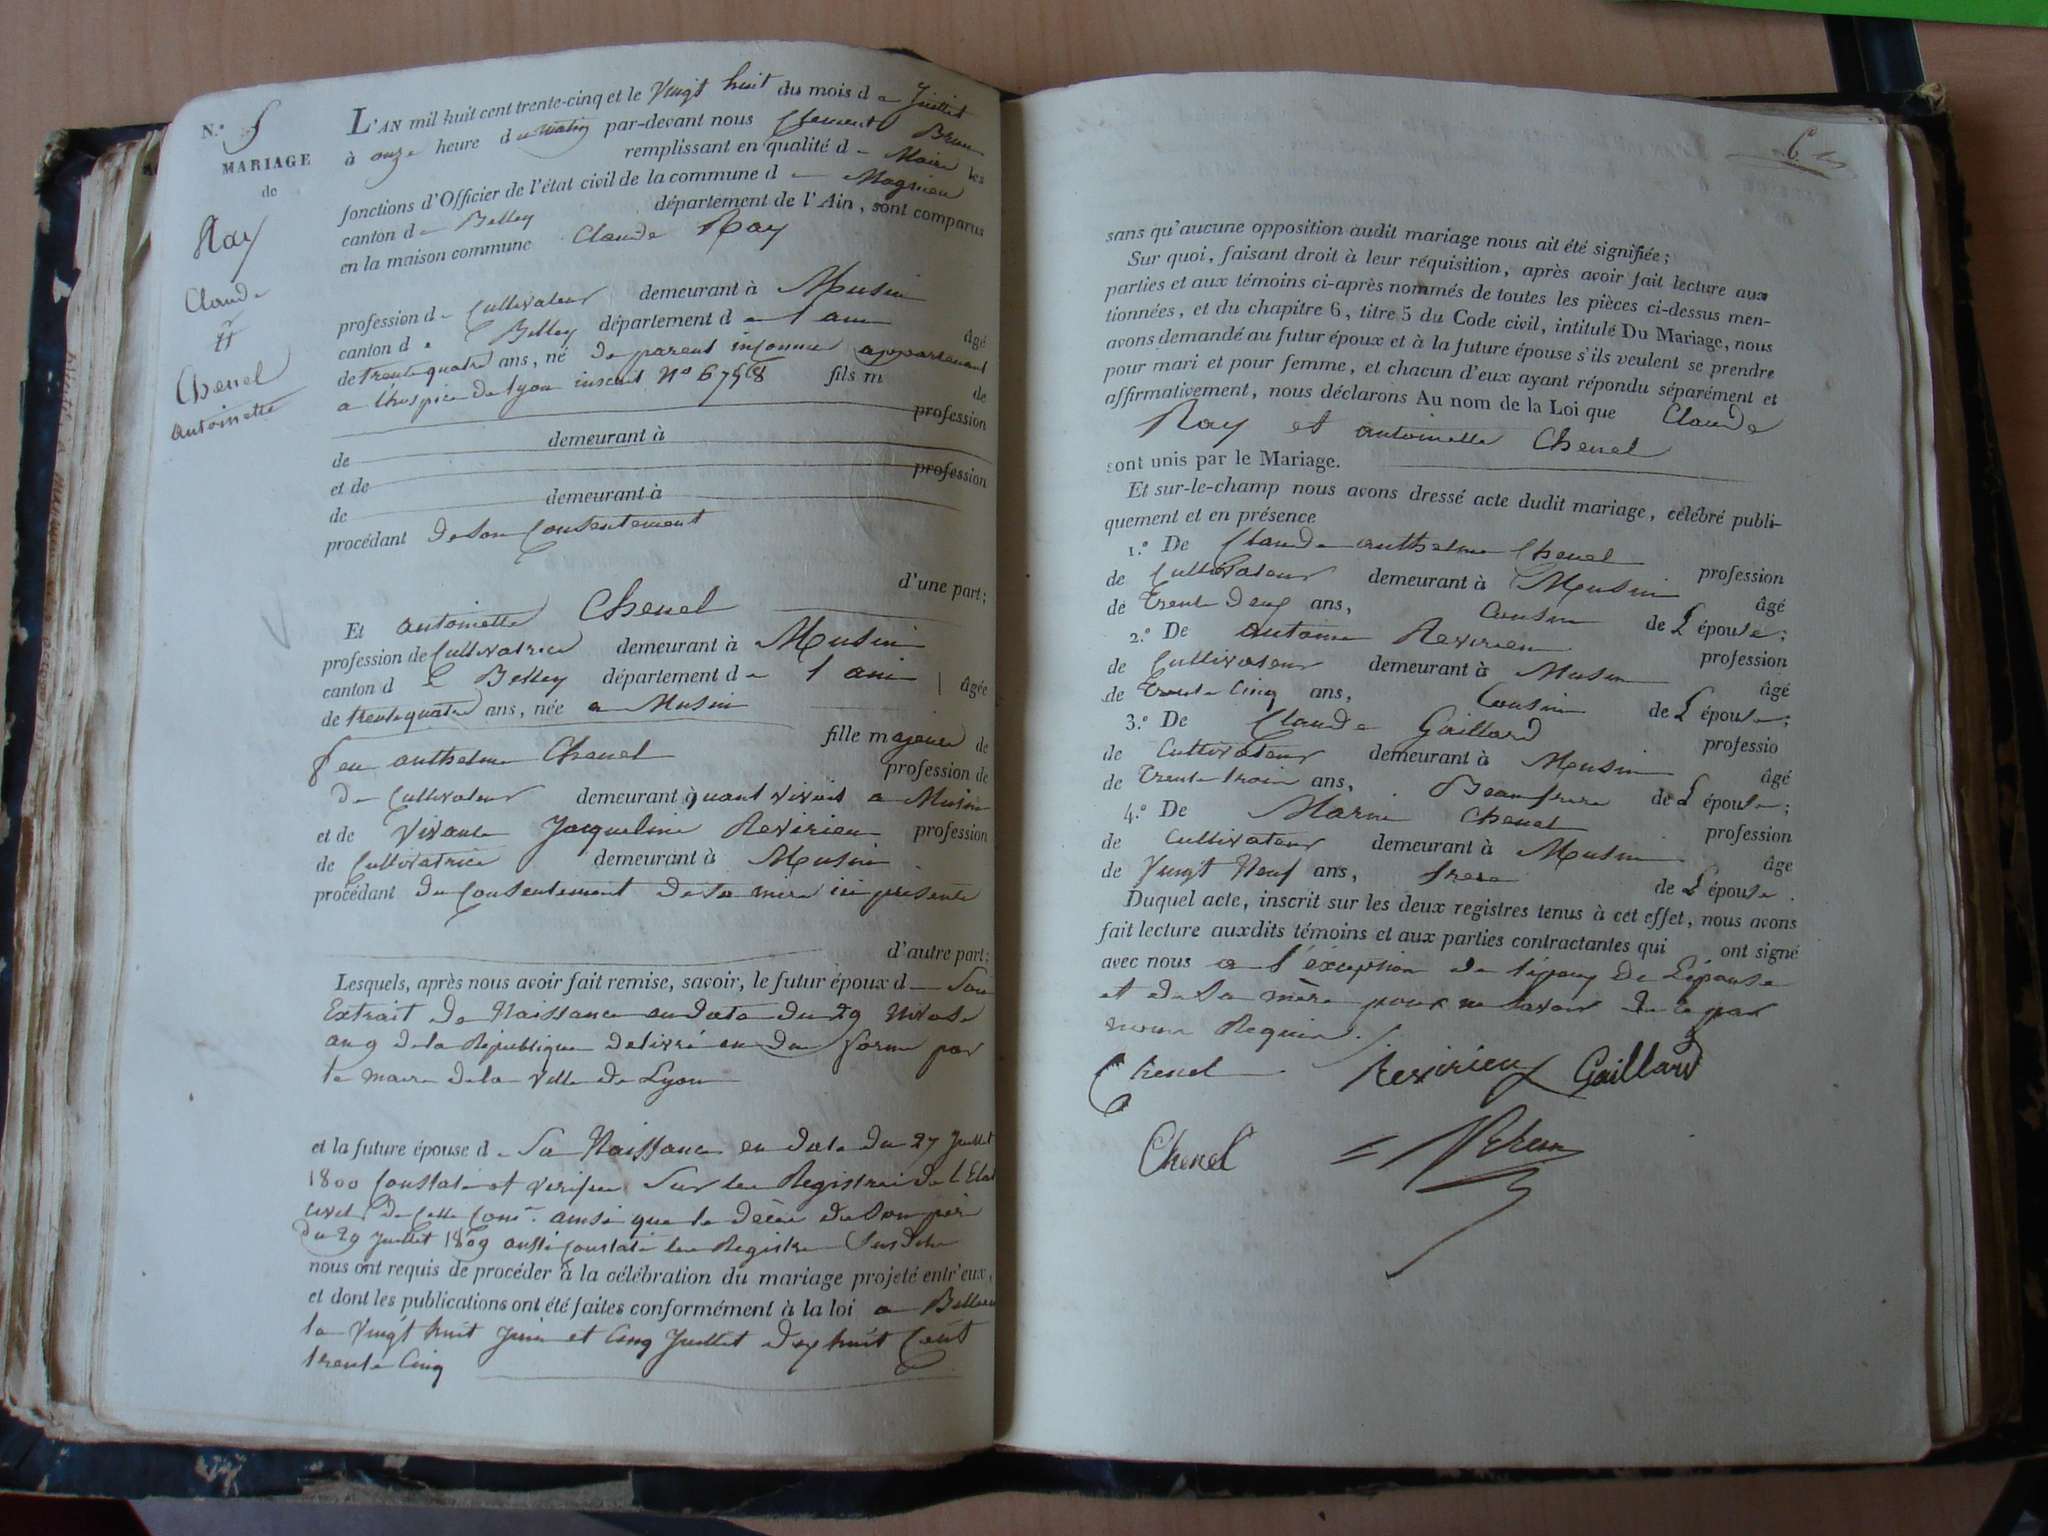 N.° 5
MARIAGE
de
Ray
Claude
et
Chenel
antoinette
L'AN mil huit cent trente-cinq et le Vingt huit du mois de Juillet
à onze heure du matin par-devant nous Clement Brun
remplissant en qualité de Maire les
fonctions d'Officier de l'état civil de la commune de Magnieu
canton de Belley département de l'Ain, sont comparus
en la maison commune Claude Ray
profession de Cultivateur demeurant à Musin
canton de Belley département de l ain âgé
de trente quatre ans, né de parent inconnu appartenant
a l'hospice de Lyon inscrit N° 6758 fils m de
profession
de demeurant à
et de profession
de demeurant à
procédant de son Consentement
d'une part;
Et antoinette Chenel
profession de Cultivatrice demeurant à Musin
canton de Belley département de l ain âgée
de trente quatre ans, née a Musin
fille majeure de
feu anthelme Chenel profession de
de Cultivateur demeurant à quant vivait a Musin
et de vivante Jacqueline Revirieu profession
de Cultivatrice demeurant à Musin
procédant du Consentement de sa mere ici présente
d'autre part;
Lesquels, après nous avoir fait remise, savoir, le futur époux d Son
Extrait de Naissance en date du 29 Nivose
an 9 de la République delivré en due forme par
le maire de la ville de Lyon
et la future épouse de Sa Naissance en date du 27 Juillet
1800 Constaté et verifiée Sur les Registres de l'Etat
civil de Cette Cone. ainsi que le décès de son père
du 29 Juillet 1809 aussi Constaté les Registre Susdits
nous ont requis de procéder à la célébration du mariage projeté entr'eux,
et dont les publications ont été faites conformément à la loi a
le vingt huit Juin et Cinq Juillet dix huit Cent
trente Cinq
6
sans qu'aucune opposition audit mariage nous ait été signifiée;
Sur quoi, faisant droit à leur réquisition, après avoir fait lecture aux
parties et aux témoins ci-après nommés de toutes les pièces ci-dessus men-
tionnées, et du chapitre 6, titre 5 du Code civil, intitulé Du Mariage, nous
avons demandé au futur époux et à la future épouse s'ils veulent se prendre
pour mari et pour femme, et chacun d'eux ayant répondu séparément et
affirmativement, nous déclarons Au nom de la Loi que Claude
Ray et antoinette Chenel
sont unis par le Mariage.
Et sur-le-champ nous avons dressé acte dudit mariage, célébré publi-
quement et en présence
1.° De Claude anthelme Chenel profession
de Cultivateur demeurant à Musin âgé
de trente deux ans, Cousin de L'épouse;
2.° De antoine Revirieu profession
de Cultivateur demeurant à Musin âgé
de trente Cinq ans, Cousin de L'épouse;
3.° De Claude Gaillard professio
de Cultivateur demeurant à Musin âgé
de trente trois ans, Beaufrere de L'épouse;
4.° De Marin Chenel profession
de Cultivateur demeurant à Musin âge
de Vingt Neuf ans, frere de L'épouse.
Duquel acte, inscrit sur les deux registres tenus à cet effet, nous avons
fait lecture auxdits témoins et aux parties contractantes qui ont signé
avec nous a l'éxception de l'époux de L'épouse
et de sa mère pour ne savoir de ce par
nous Requis.
Chenel Revirieu Gaillard
Chenel Brun